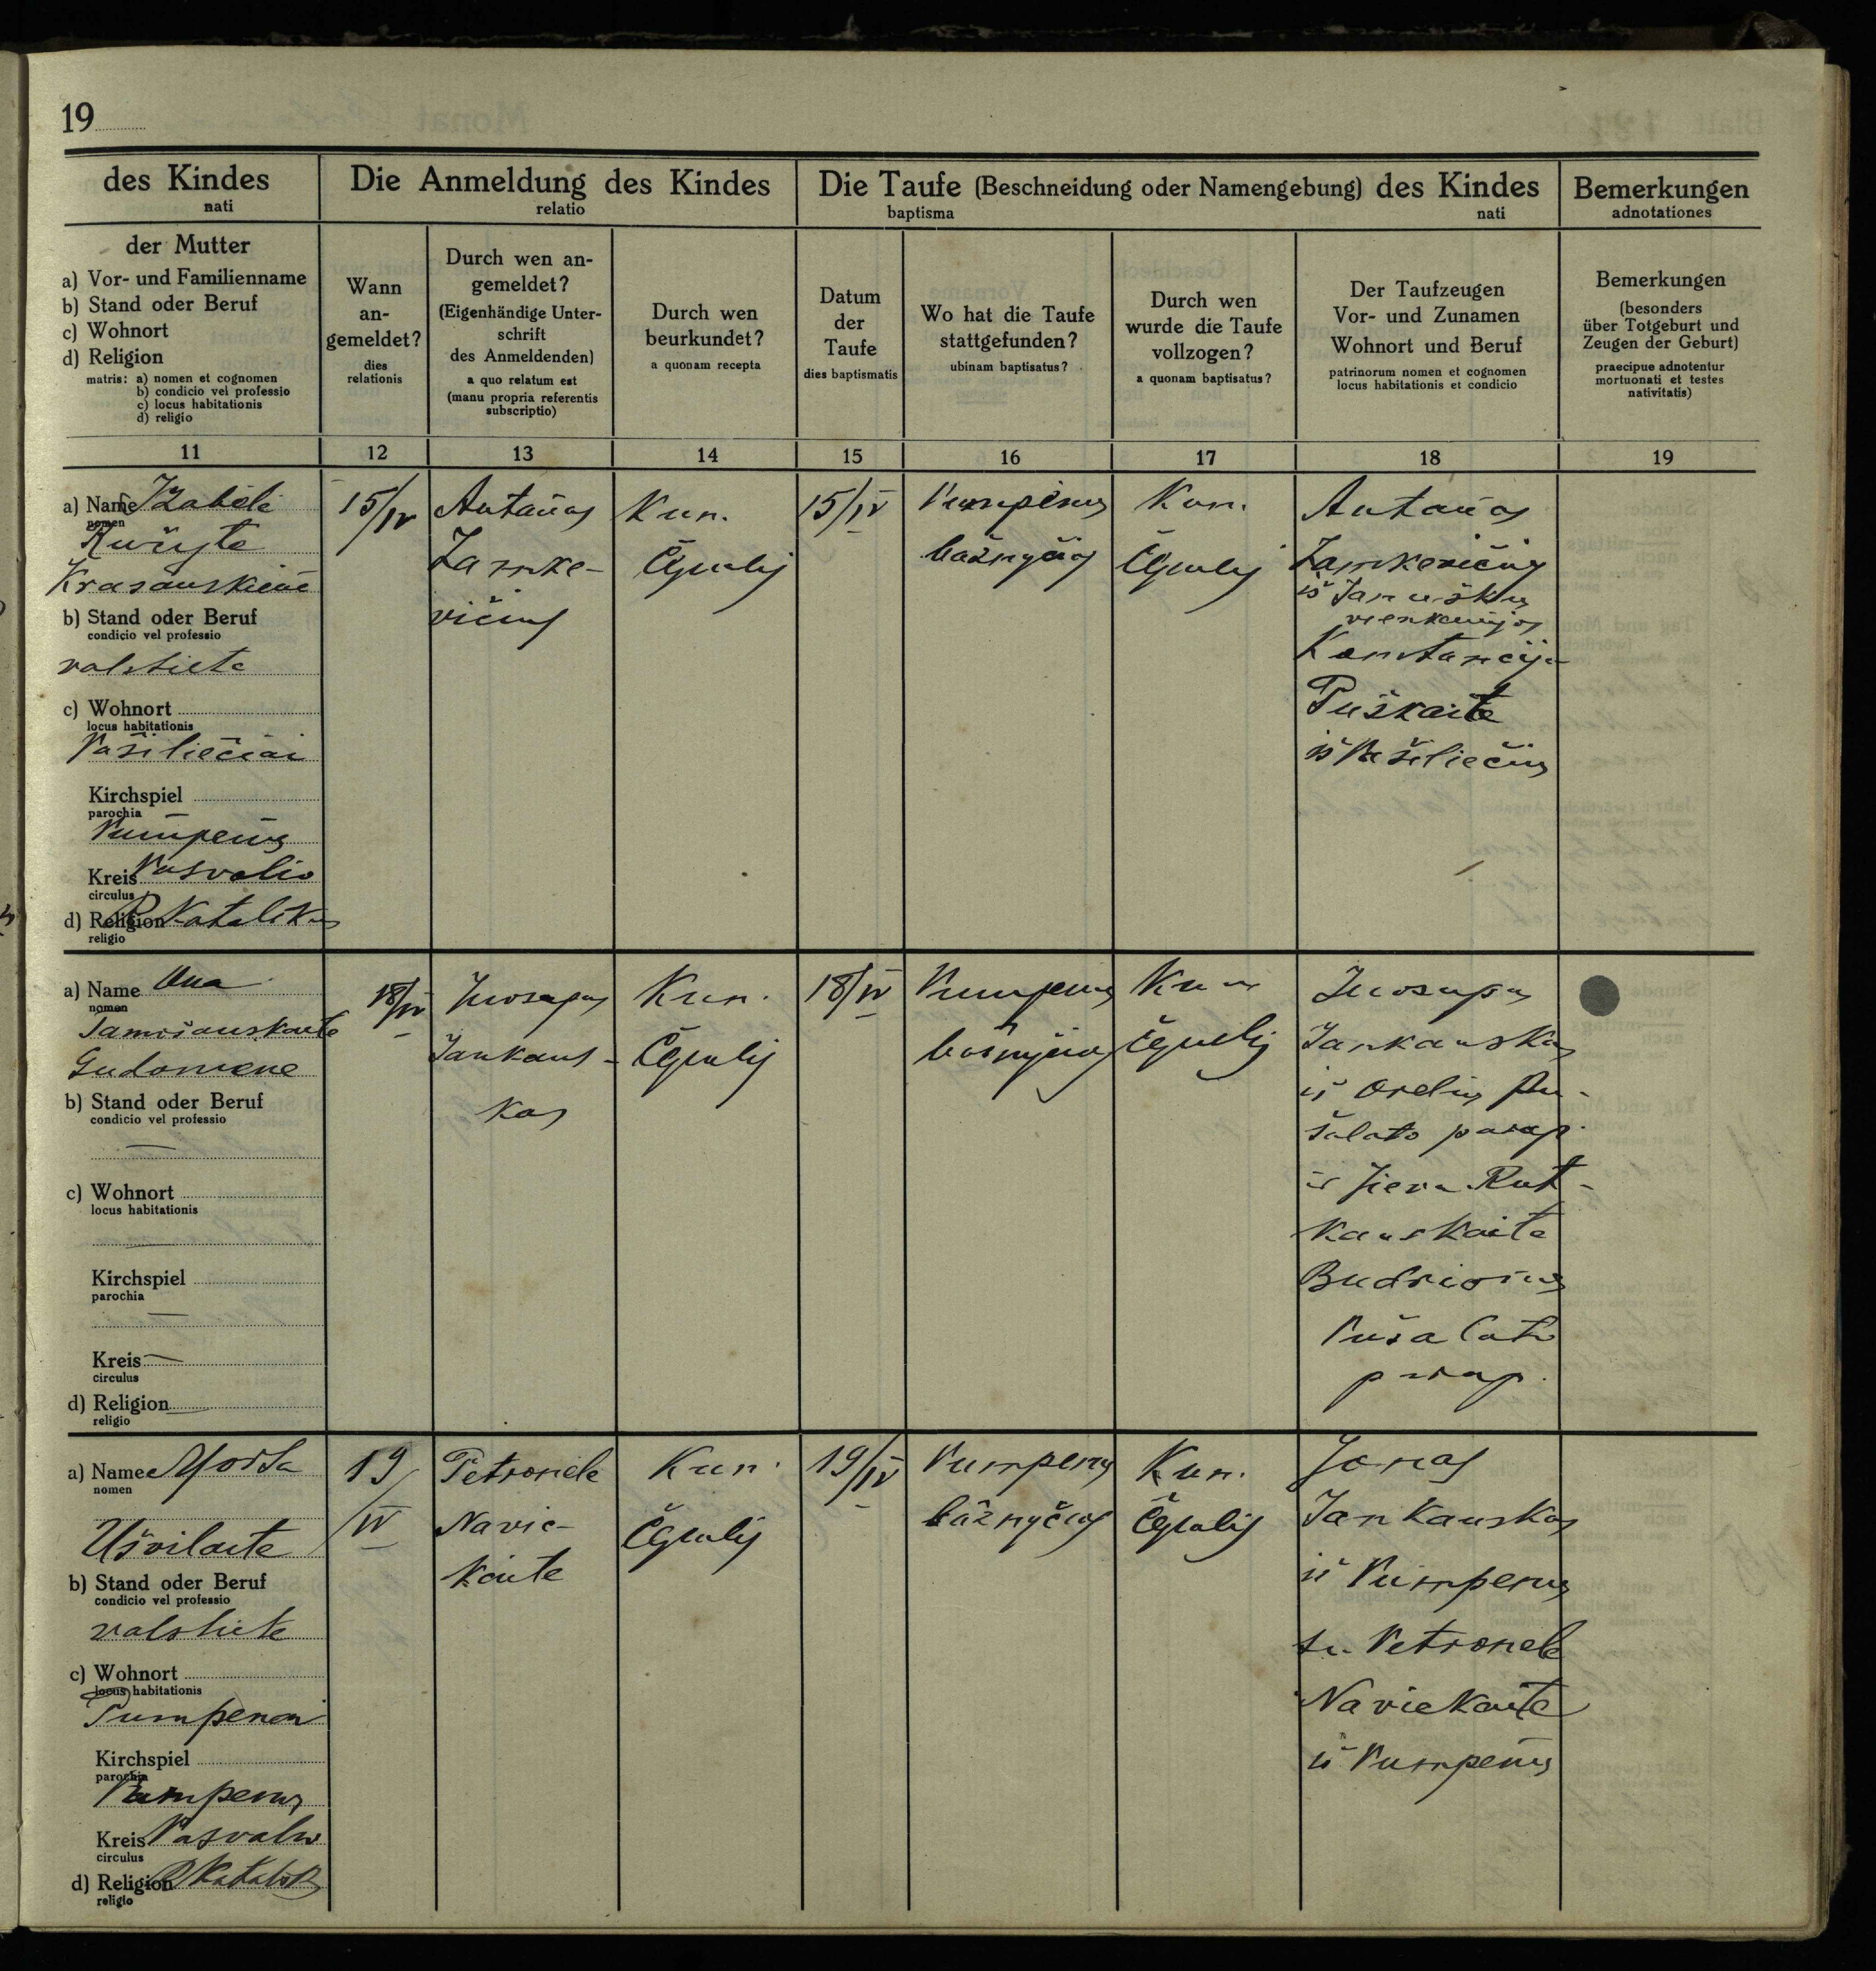 19
des Kindes
nati
Die Anmeldung des Kindes
relatio
Die Taufe (Beschneidung oder Namengebung) des Kindes
baptisma nati
Bemerkungen
adnotationes
der Mutter
a) Vor- und Familienname
b) Stand oder Beruf
c) Wohnort
d) Religion
matris: a) nomen et cognomen
b) condicio vel professio
c) locus habitationis
d) religio
Wann
an-
gemeldet?
dies
relationis
Durch wen an-
gemeldet?
(Eigenhändige Unter-
schrift
des Anmeldenden)
a quo relatum est
(manu propria referentis
subscriptio)
Durch wen
beurkundet?
a quonam recepta
Datum
der
Taufe
dies baptismatis
Wo hat die Taufe
stattgefunden?
ubinam baptisatus?
Durch wen
wurde die Taufe
vollzogen?
a quonam baptisatus?
Der Taufzeugen
Vor- und Zunamen
Wohnort und Beruf
patrinorum nomen et cognomen
locus habitationis et condicio
Bemerkungen
(besonders
über Totgeburt und
Zeugen der Geburt)
praecipue adnotentur
mortuonati et testes
nativitatis)
11 12 13 14 15 16 17 18 19
a) Name Izabėlė
nomen
Krasauskienė
b) Stand oder Beruf
condicio vel professio
valstietė
c) Wohnort
locus habitationis
Pašiliečiai
Kirchspiel
parochia
Pumpėnų
Kreis Pasvalio
circulus
d) Religion R Katalikų
religio
15/IV
Antanas
Zamke-
vičius
Kun.
15/IV
Pumpėnų
bažnyčioj
Kun.
Antanas
Zamkevičius
iš
vienkiemijos
Konstancija
Puškaitė
iš Pašiliečių
a) Name Ona
nomen
Tamošauskaitė
b) Stand oder Beruf
condicio vel professio
—
c) Wohnort
locus habitationis
—
Kirchspiel
parochia
—
Kreis —
circulus
d) Religion —
religio
18/IV
Juozapas
Jankaus-
kas
Kun.
18/IV
Pumpėnų
bažnyčioj
Kun.
Juozapas
Jankauskas
iš Orelių Pu-
šaloto parap.
ir Jieva Rut-
kauskaitė
Budrionių
Pušaloto
parap.
a) Name
nomen
Užvilaitė
b) Stand oder Beruf
condicio vel professio
valstietė
c) Wohnort
locus habitationis
Pumpėnai
Kirchspiel
parochia
Pumpėnų
Kreis Pasvalio
circulus
d) Religion R Katalik
religio
19/
IV
Petronelė
Navic-
kaitė
Kun.
19/IV
Pumpėnų
bažnyčioj
Kun.
Jonas
Jankauskas
iš Pumpėnų
su Petronele
Navickaite
iš Pumpėnų